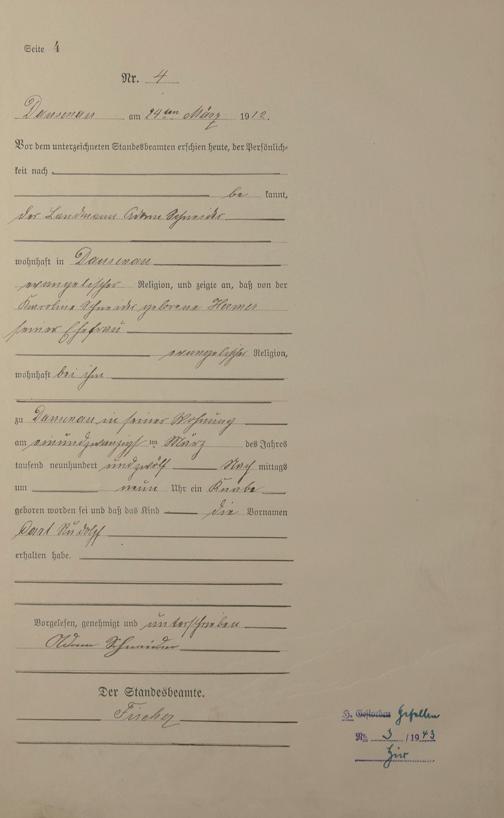 Seite 4
Nr. 4
am 24ten März 1912.
Vor dem unterzeichneten Standesbeamten erschien heute, der Persönlich-
keit nach
be kannt,
der Landmann Adam Schneider
wohnhaft in
evangelischer Religion, und zeigte an, daß von der
Karoline Schneider geborene
seiner Ehefrau
evangelischer Religion,
wohnhaft bei ihm
zu in seiner Wohnung
am einundzwanzigsten März des Jahres
tausend neunhundert und zwölf Nach mittags
um neun Uhr ein Knabe
geboren worden sei und daß das Kind die Vornamen
Rudolf
erhalten habe.
Vorgelesen, genehmigt und unterschrieben
Adam Schneider
Der Standesbeamte.
Fischer
H. Gestorben Gefallen
Nr. 3 / 1943
hier